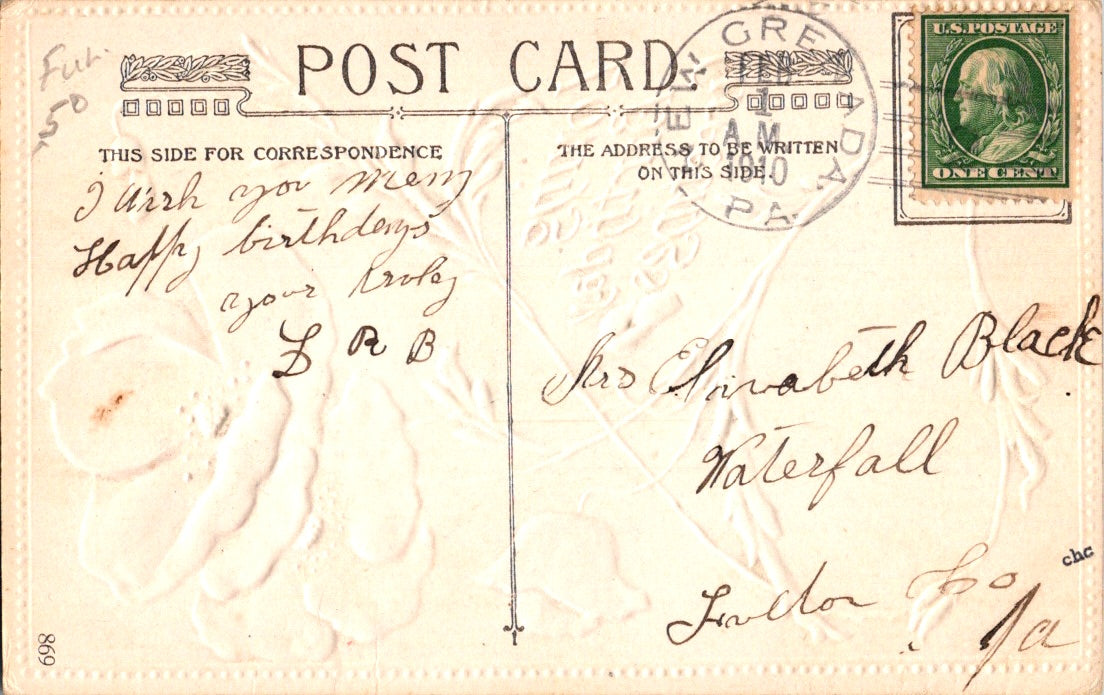 POST CARD.
THIS SIDE FOR CORRESPONDENCE
THE ADDRESS TO BE WRITTEN
ON THIS SIDE.
NEW GRENADA
1
A.M.
1910
PA.
U.S. POSTAGE
ONE CENT
50
I wish you meny
Happy birthdays
your truley
L R B
Mrs Elizabeth Black
Waterfall
Fulton Co
Pa
chc
698